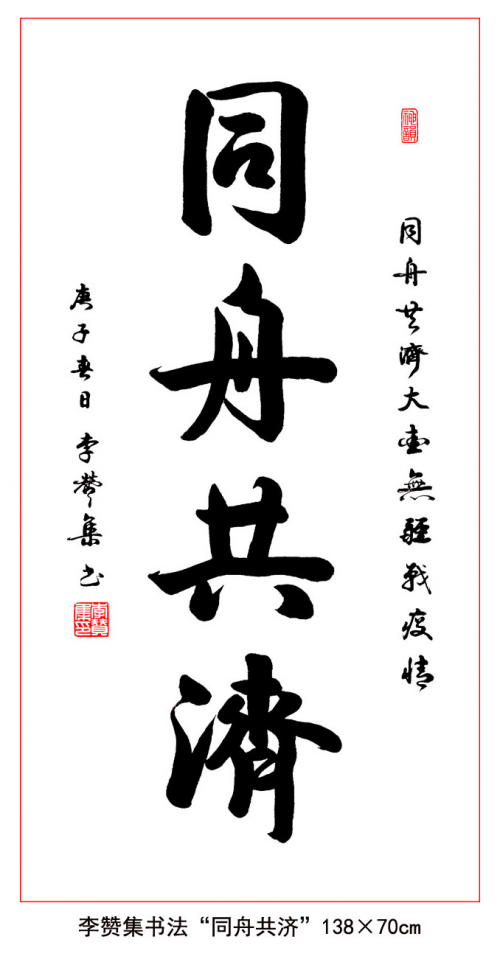 同舟共濟大愛無疆戰疫情
同舟共濟
庚子春日李赞集书
李赞集书法“同舟共济”138×70cm